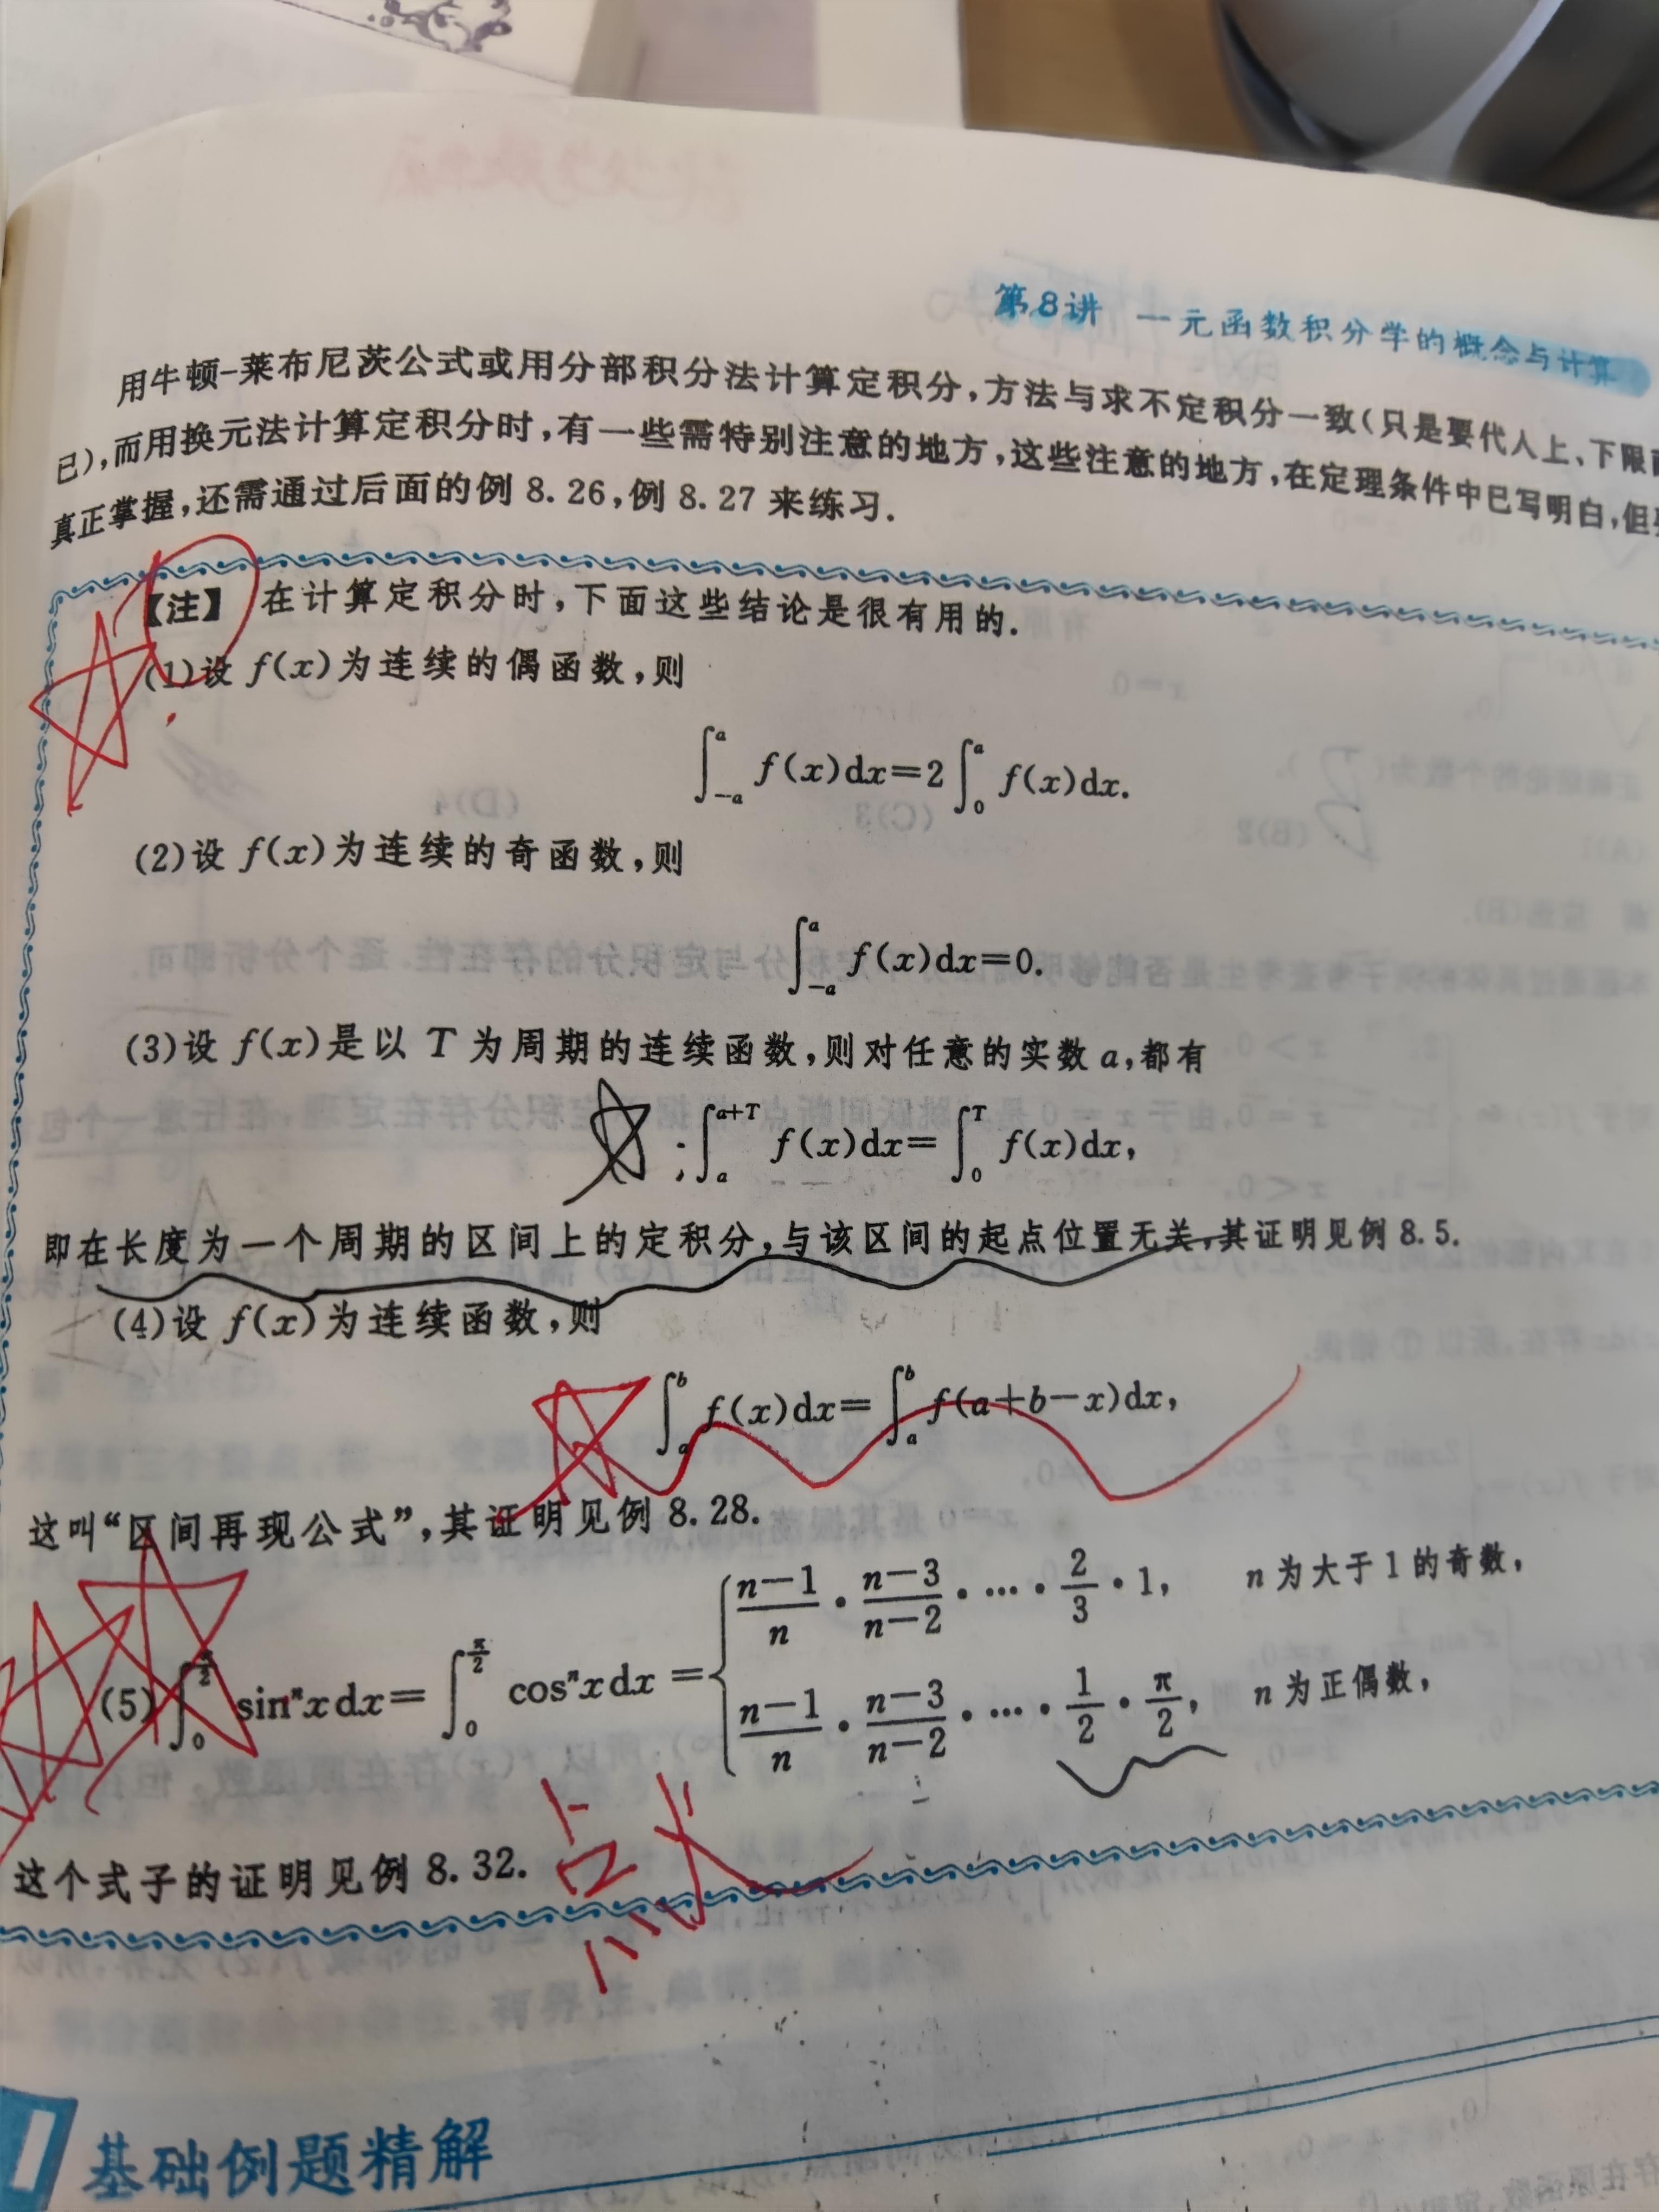 第8讲 一元函数积分学的概念与计算
用牛顿-莱布尼茨公式或用分部积分法计算定积分,方法与求不定积分一致(只是要代入上、下限
已),而用换元法计算定积分时,有一些需特别注意的地方,这些注意的地方,在定理条件中已写明白,但
真正掌握,还需通过后面的例 8.26,例 8.27 来练习.
【注】 在计算定积分时,下面这些结论是很有用的.
(1)设 f(x)为连续的偶函数,则
∫_{-a}^{a} f(x)dx=2∫_{0}^{a} f(x)dx.
(2)设 f(x)为连续的奇函数,则
∫_{-a}^{a} f(x)dx=0.
(3)设 f(x)是以 T 为周期的连续函数,则对任意的实数 a,都有
∫_{a}^{a+T} f(x)dx=∫_{0}^{T} f(x)dx,
即在长度为一个周期的区间上的定积分,与该区间的起点位置无关,其证明见例 8.5.
(4)设 f(x)为连续函数,则
∫_{a}^{b} f(x)dx=∫_{a}^{b} f(a+b-x)dx,
这叫“区间再现公式”,其证明见例 8.28.
(5)∫_{0}^{π/2} sin^n x dx=∫_{0}^{π/2} cos^n x dx={ (n-1)/n · (n-3)/(n-2) · … · 2/3 · 1, n 为大于 1 的奇数,
(n-1)/n · (n-3)/(n-2) · … · 1/2 · π/2, n 为正偶数,
这个式子的证明见例 8.32.
点火
基础例题精解